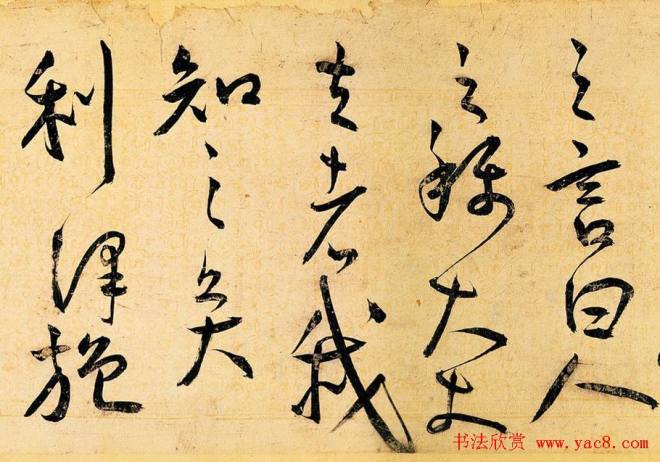 之言曰人
之称大丈
夫者我
知之矣
利泽施
书法欣赏 www.yac8.com